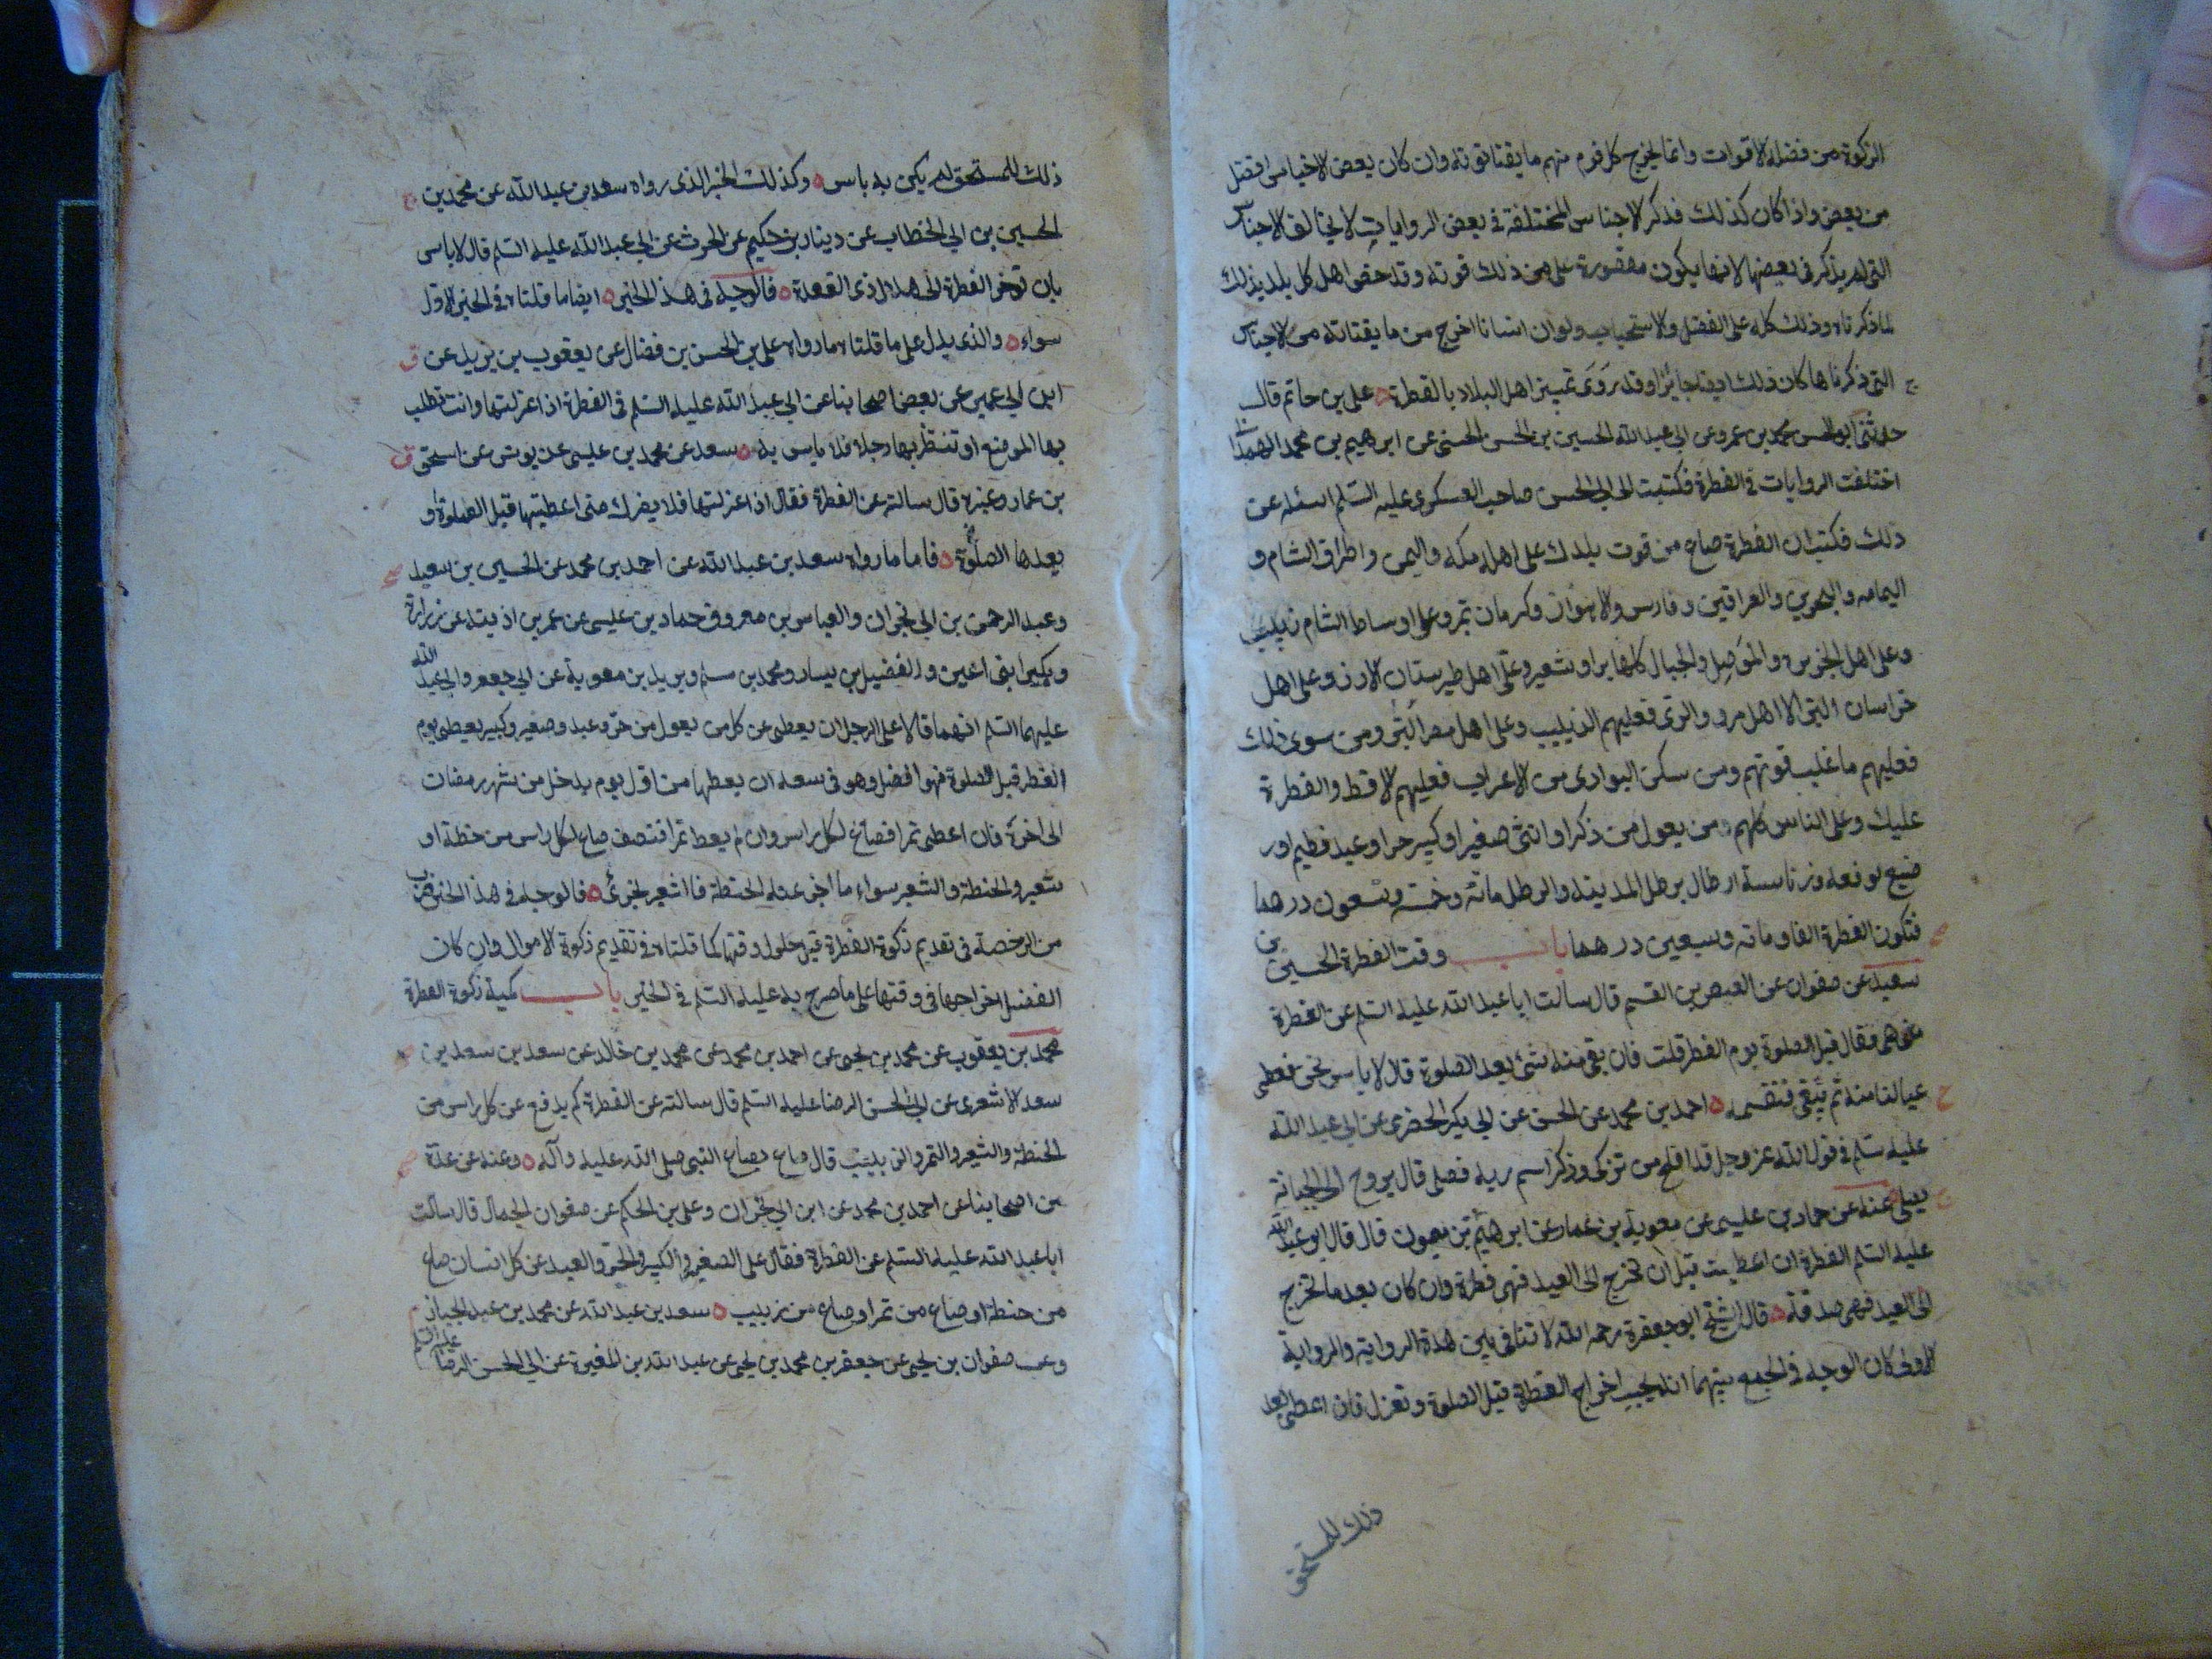 الزكوة من فضلة الاقوات وانما يخرج كل قوم منهم ما يقتاتونه وان كان بعض الاخياس افضل
من بعض واذا كان كذلك فذكر الاجناس المختلفة في بعض الروايات لا يخالف الاجناس
التى لم يذكر في بعضها لانها يكون مقصورة على من ذلك قوته وقد خص اهل كل بلد بذلك
لما ذكرناه وذلك كله على الفضل والاستحباب ولو ان انسانا اخرج من ما يقتاته من الاجناس
التى ذكرناها كان ذلك ايضا جائزا وقد روى تمييز اهل البلاد بالفطرة ه على بن حاتم قال
حدثنى ابو الحسن محمد بن عمرو عن ابى عبد الله الحسين بن الحسن الحسنى عن ابرهيم بن محمد الهمدانى
اختلفت الروايات في الفطرة فكتبت الى ابى الحسن صاحب العسكرى عليه السلم اسئله عن
ذلك فكتب ان الفطرة صاع من قوت بلدك على اهل مكه واليمن واطراف الشام و
اليمامه والبحرين والعراقين وفارس والاهواز وكرمان تمر وعلى اوساط الشام زبيب
وعلى اهل الجزيره والموصل والجبال كلها برا وشعير وعلى اهل طبرستان الارز وعلى اهل
خراسان البر الا اهل مرو والرى فعليهم الزبيب وعلى اهل مصر البر ومن سوى ذلك
فعليهم ما غلب قوتهم ومن سكن البوادى من الاعراب فعليهم الاقط والفطرة
عليك وعلى الناس كلهم ومن يعول من ذكر او انثى صغير او كبير حر او عبد فطيم او ر
ضيع توفعه وزنا ستة ارطال برطل المدينه والرطل مائة وخمسة وتسعون درهما
فتكون الفطرة الفا ومائه وسبعين درهما باب وقت الفطرة الحسين بن
سعيد عن صفوان عن العيص بن القسم قال سالت ابا عبد الله عليه السلم عن الفطرة
متى هى فقال قبل الصلوة يوم الفطر قلت فان بقى منه شئ بعد الصلوة قال لا باس نحن نعطى
عيالنا منه ثم يبقى فنقسمه ه احمد بن محمد عن الحسن عن ابى بكر الحضرمى عن ابى عبد الله
عليه سلم في قول الله عز وجل قد افلح من تزكى وذكر اسم ربه فصلى قال يروح الى الجبانة
فيصلى عنه عن حماد بن عليسى عن معوية بن عمار عن ابرهيم بن ميمون قال قال ابو عبد الله
عليه السلم الفطرة ان اعطيت قبل ان تخرج الى العيد فهى فطرة وان كان بعد ما تخرج
الى العيد فهى صدقة ه قال الشيخ ابو جعفرة رحمه الله لا تنافى بين هذه الرواية والرواية
الاولى كان الوجه في الجمع بينهما انه يجب اخراج الفطرة قبل الصلوة وتعزل فان اعطى بعد
ذلك للمستحق
ذلك للمستحق لم يكن به باس ه وكذلك الخبر الذى رواه سعد بن عبد الله عن محمد بن
الحسين بن ابى الخطاب عن دينار بن حكيم عن الحرث عن ابى عبد الله عليه السلم قال لا باس
بان تؤخر الفطرة الى هلال ذى القعدة ه فالوجه في هذا الخبر ه ايضا ما قلناه في الخبر الاول
سواء ه والذى يدل على ما قلناه ما رواه على بن الحسن بن فضال عن يعقوب بن يزيد عن
ابن ابى عمير عن بعض اصحابنا عن ابى عبد الله عليه السلم في الفطرة اذا عزلتها وانت تطلب
بها الموضع او تنتظر بها رجلا فلا باس به ه سعد عن محمد بن عليسى عن يونس عن اسحق
بن عمار وغيره قال سالته عن الفطرة فقال اذا عزلتها فلا يضرك متى اعطيتها قبل الصلوة او
بعدها الصلوة ه فاما ما رواه سعد بن عبد الله عن احمد بن محمد عن الحسين بن سعيد
وعبد الرحمن بن ابى نجران والعباس بن معروف حماد بن عليسى عن عمر بن اذينه عن زرارة
وبكير ابنى اعين والفضيل بن يسار ومحمد بن مسلم وبريد بن معوية عن ابى جعفر وابى عبد الله
عليهما السلم انهما قالا على الرجل ان يعطى عن كل من يعول من حر وعبد وصغير وكبير يعطى يوم
الفطر قبل الصلوة فهو افضل وهو في سعه ان يعطيها من اول يوم يدخل من شهر رمضان
الى اخره فان اعطى تمرا فصاع لكل راس وان لم يعط تمرا فنصف صاع لكل راس من حنطة او
شعير والحنطة والشعير سواء ما اجزء عنه الحنطة فالشعير يجزئ ه فالوجه في هذا الخبر ضرب
من الرخصة في تقديم زكوة الفطرة قبل حلول وقتها كما قلناه في تقديم زكوة الاموال وان كان
الفضل اخراجها في وقتها على ما صرح به عليه السلم في الخبر باب كمية زكوة الفطرة
محمد بن يعقوب عن محمد بن يحيى عن احمد بن محمد عن محمد بن خالد عن سعد بن سعد بن
سعد الاشعرى عن ابى الحسن الرضا عليه السلم قال سالته عن الفطرة كم يدفع عن كل راس من
الحنطة والشعير والتمر والزبيب قال صاع بصاع النبى صلى الله عليه وآله ه وعنه عن عدة
من اصحابنا عن احمد بن محمد عن ابن ابى نجران وعلى بن الحكم عن صفوان الجمال قال سالت
ابا عبد الله عليه السلم عن الفطرة فقال على الصغير والكبير والحر والعبد عن كل انسان صاع
من حنطة او صاع من تمر او صاع من زبيب ه سعد بن عبد الله عن محمد بن عبد الجبار
وعن صفوان بن يحيى عن جعفر بن محمد بن يحيى عن عبد الله بن المغيرة عن ابى الحسن الرضا عليه السلم